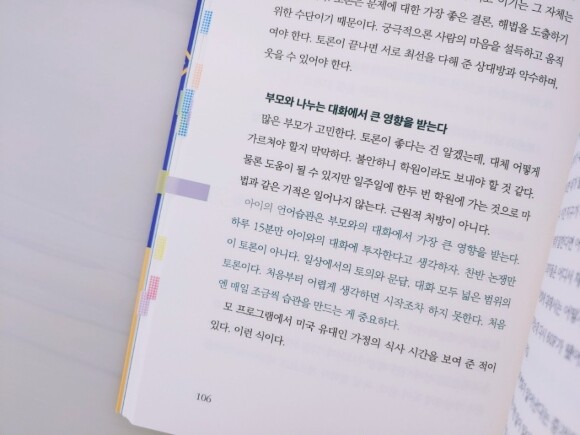 은 문제에 대한 가장 좋은 결론, 해법을 도출하기
위한 수단이기 때문이다. 궁극적으론 사람의 마음을 설득하고 움직
여야 한다. 토론이 끝나면 서로 최선을 다해 준 상대방과 악수하며,
웃을 수 있어야 한다.
부모와 나누는 대화에서 큰 영향을 받는다
많은 부모가 고민한다. 토론이 좋다는 건 알겠는데, 대체 어떻게
가르쳐야 할지 막막하다. 불안하니 학원이라도 보내야 할 것 같다.
물론 도움이 될 수 있지만 일주일에 한두 번 학원에 가는 것으로 마
법과 같은 기적은 일어나지 않는다. 근원적 처방이 아니다.
아이의 언어습관은 부모와의 대화에서 가장 큰 영향을 받는다.
하루 15분만 아이와의 대화에 투자한다고 생각하자. 찬반 논쟁만
이 토론이 아니다. 일상에서의 토의와 문답, 대화 모두 넓은 범위의
토론이다. 처음부터 어렵게 생각하면 시작조차 하지 못한다. 처음
엔 매일 조금씩 습관을 만드는 게 중요하다.
모 프로그램에서 미국 유대인 가정의 식사 시간을 보여 준 적이
있다. 이런 식이다.
106